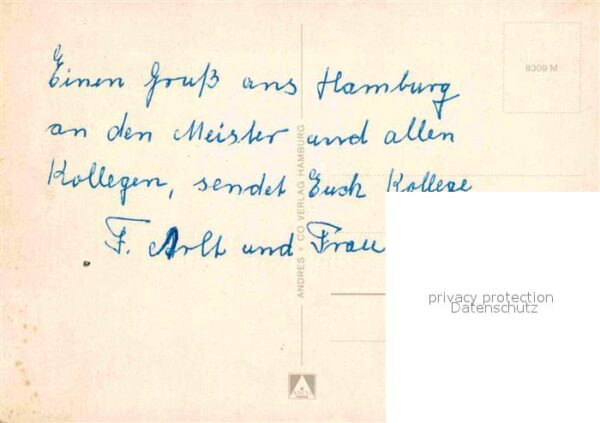 Einen Gruß aus Hamburg
an den Meister und allen
Kollegen, sendet Euch Kollege
F. Arlt und Frau
8309 M
ANDRES + CO VERLAG HAMBURG
privacy protection
Datenschutz